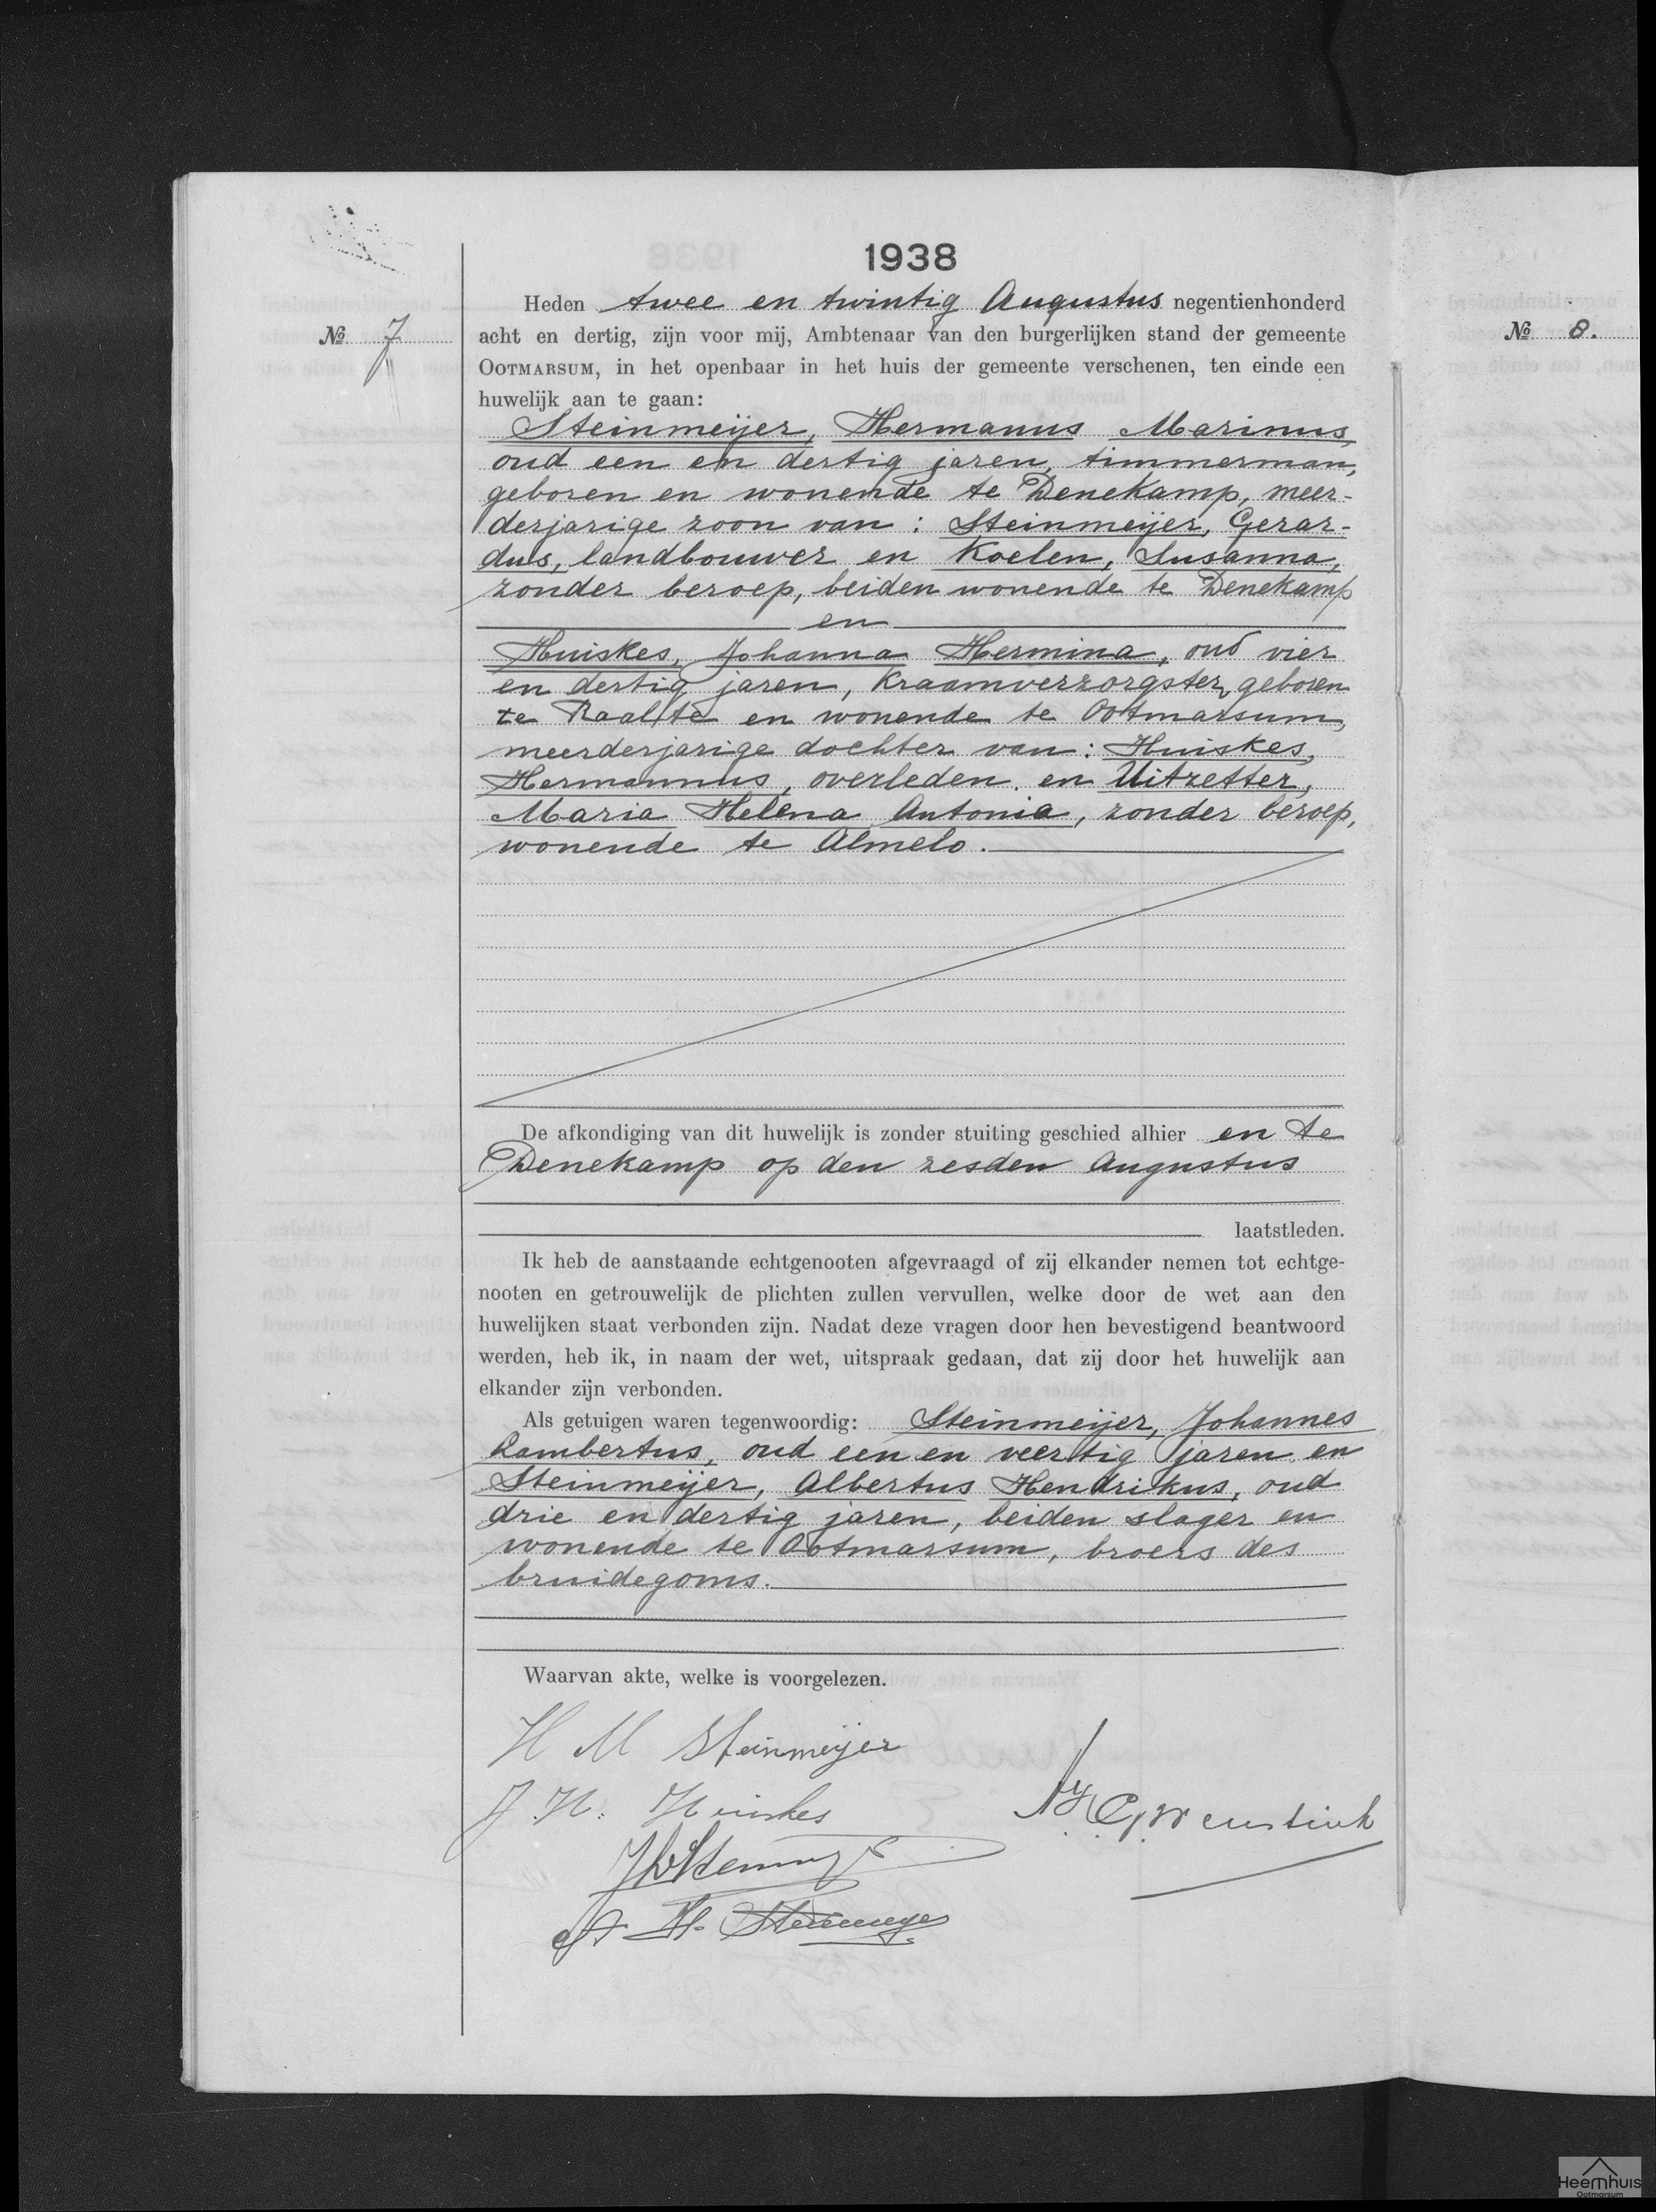 1938
Heden twee en twintig Augustus negentienhonderd
No 7
acht en dertig, zijn voor mij, Ambtenaar van den burgerlijken stand der gemeente
OOTMARSUM, in het openbaar in het huis der gemeente verschenen, ten einde een
huwelijk aan te gaan:
Steinmeijer, Hermanus Marinus,
oud een en dertig jaren, timmerman,
geboren en wonende te Denekamp, meer-
derjarige zoon van: Steinmeijer, Gerar-
dus, landbouwer en Koelen, Susanna,
zonder beroep, beiden wonende te Denekamp
en
Huiskes, Johanna Hermina, oud vier
en dertig jaren, kraamverzorgster, geboren
te Raalte en wonende te Ootmarsum,
meerderjarige dochter van: Huiskes,
Hermannus, overleden, en Uitzetter,
Maria Helena Antonia, zonder beroep,
wonende te Almelo.
De afkondiging van dit huwelijk is zonder stuiting geschied alhier en te
Denekamp op den zesden Augustus
laatstleden.
Ik heb de aanstaande echtgenooten afgevraagd of zij elkander nemen tot echtge-
nooten en getrouwelijk de plichten zullen vervullen, welke door de wet aan den
huwelijken staat verbonden zijn. Nadat deze vragen door hen bevestigend beantwoord
werden, heb ik, in naam der wet, uitspraak gedaan, dat zij door het huwelijk aan
elkander zijn verbonden.
Als getuigen waren tegenwoordig: Steinmeijer, Johannes
Lambertus, oud een en veertig jaren en
Steinmeijer, Albertus Hendrikus, oud
drie en dertig jaren, beiden slager en
wonende te Ootmarsum, broers des
bruidegoms.
Waarvan akte, welke is voorgelezen.
H M Steinmeijer
J. H. Huiskes
H. Steinmeyer
No 8.
Heemhuis
Ootmarsum